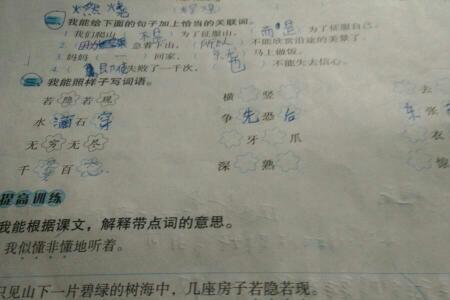 二、我能给下面的句子加上恰当的关联词。
1. 我们爬山 不是 为了征服山, 而是 为了征服自己。
2. 因为 急着下山, 所以 不能欣赏沿途的美景了。
3. 妈妈 回家, 马上做饭。
4. 即使 失败了一千次, 也 不能失去信心。
三、我能照样子写词语。
若隐若现 横 竖 去
水滴石穿 争先恐后 东张
无穷无尽 牙 爪 衣
千 百 深 熟
提高训练
我能根据课文,解释带点词的意思。
我似懂非懂地听着。
只见山下一片碧绿的树海中,几座房子若隐若现。